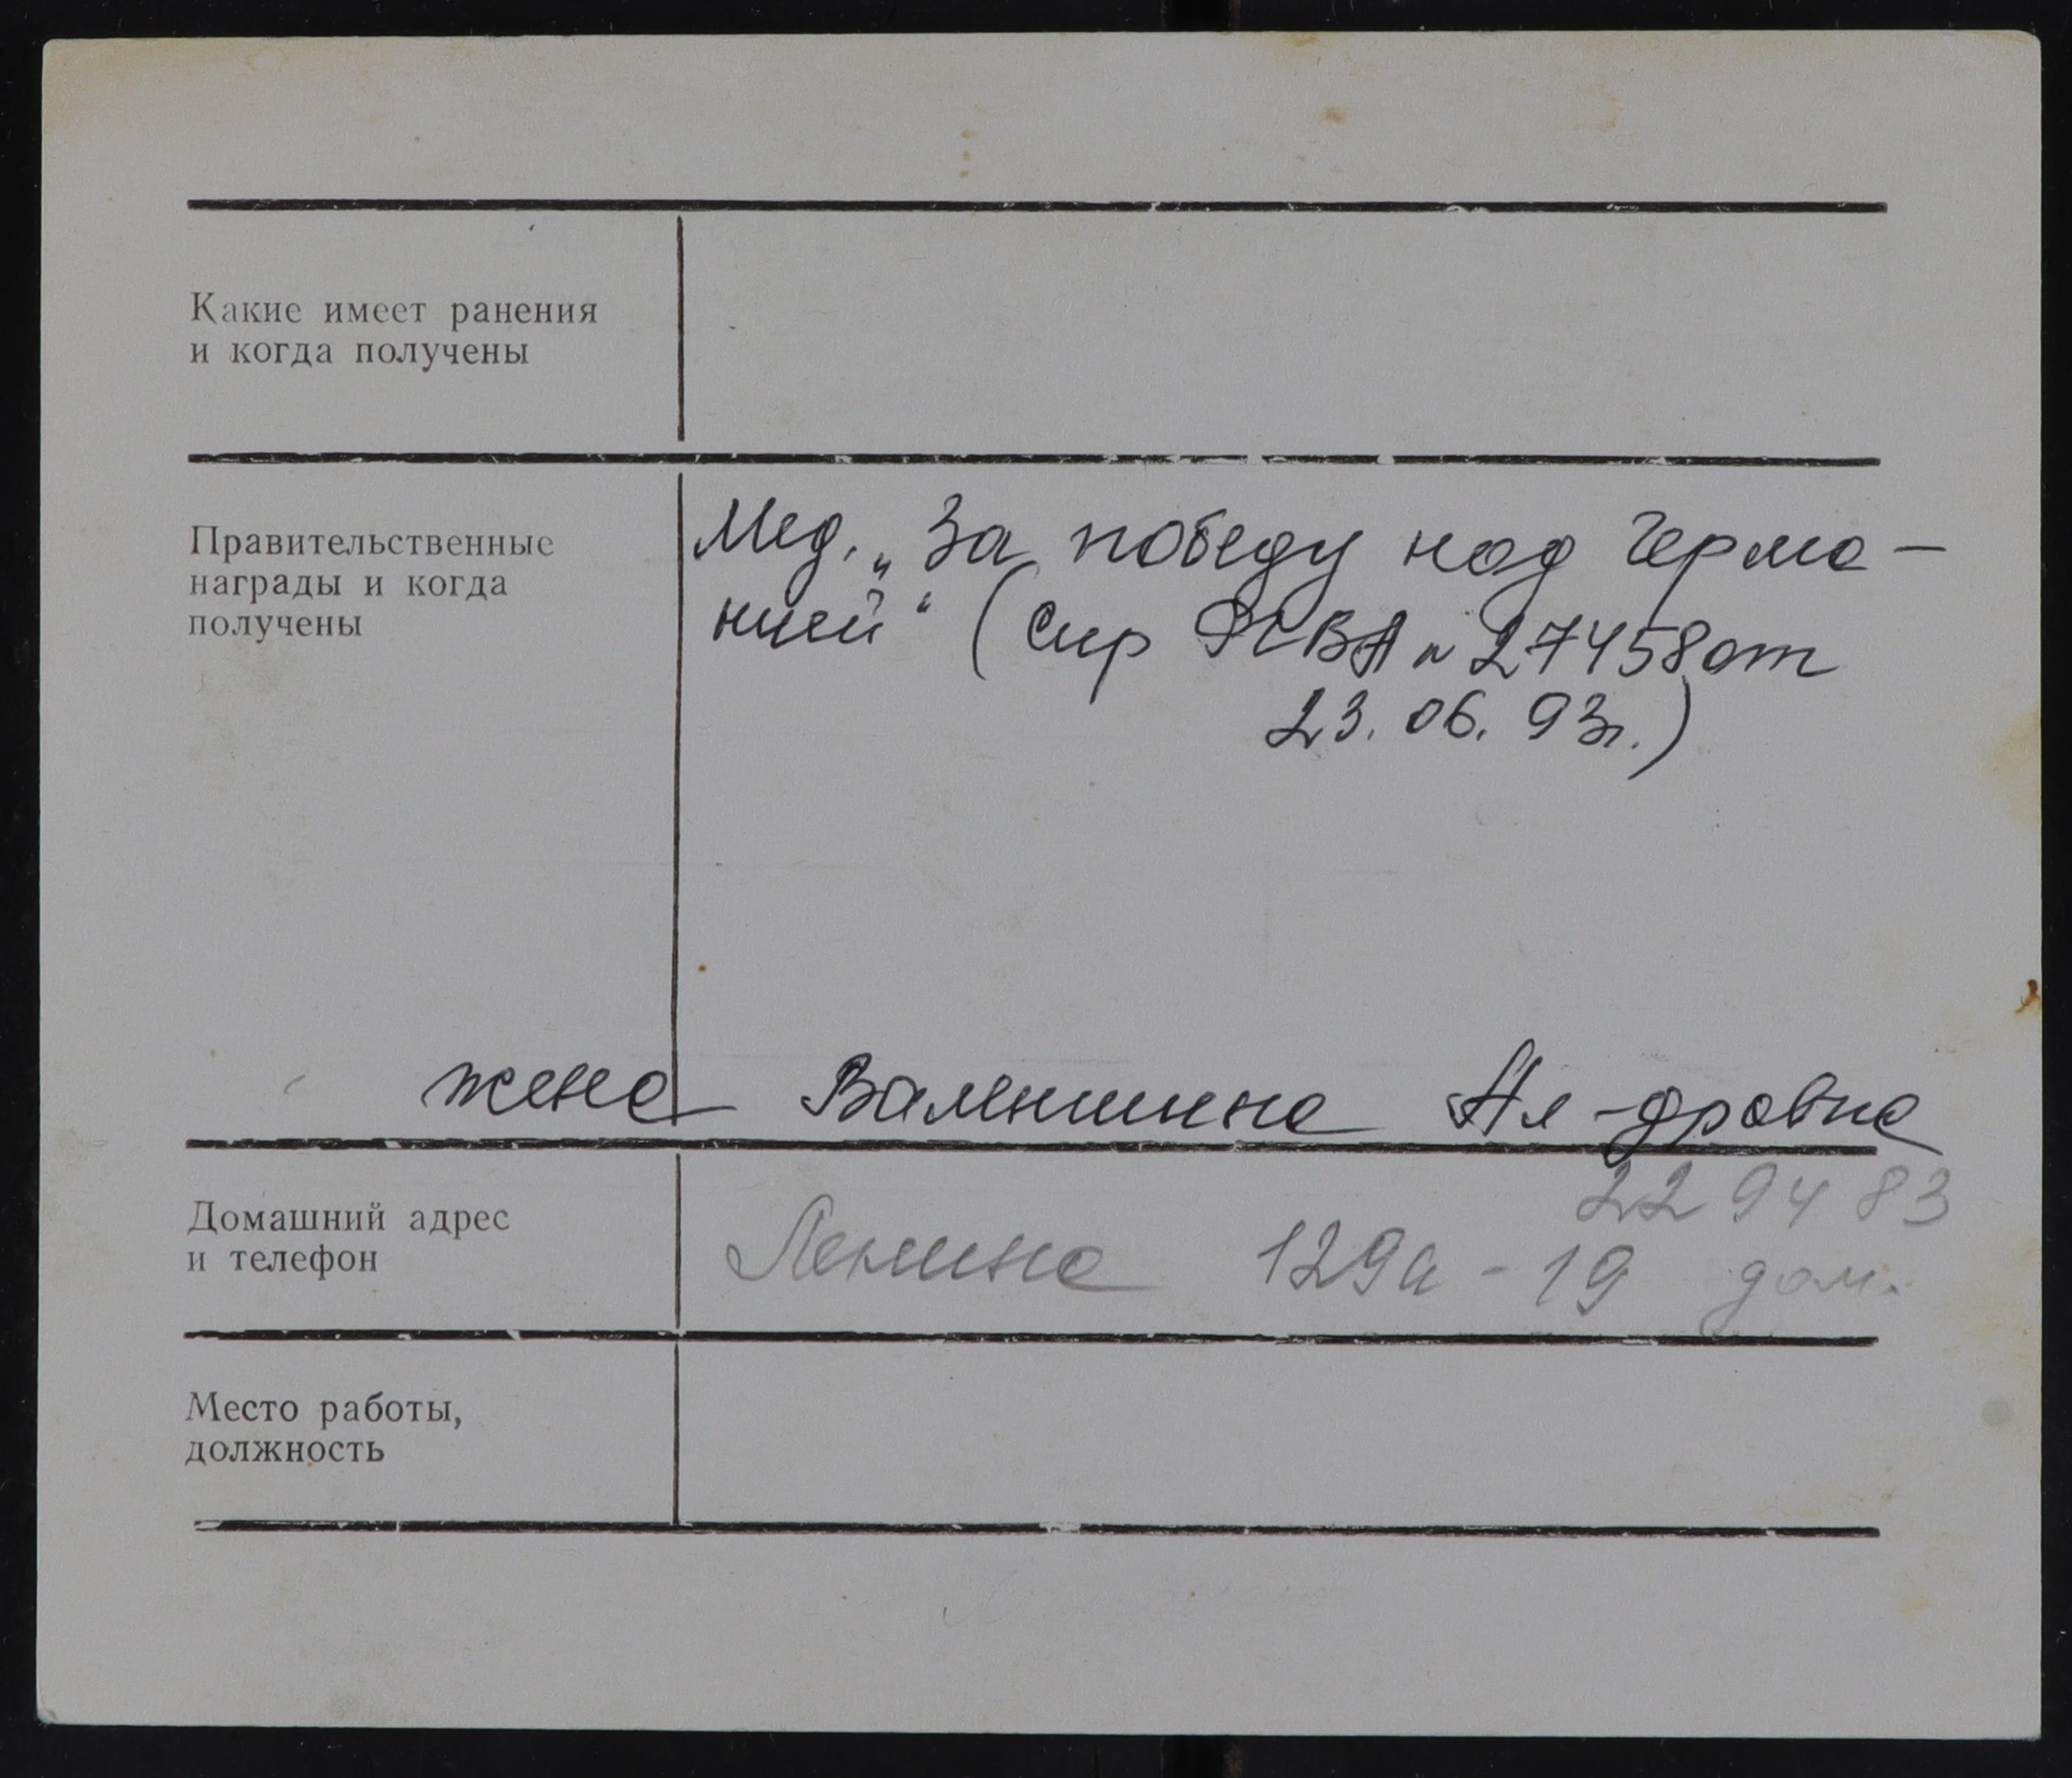 Какие имеет ранения
и когда получены
Правительственные
награды и когда
получены
Мед. „За победу над Герма-
нией“ (Спр РГВА N 27458 от
23.06.93г.)
жена Валентина Ал-дровна
229483
Домашний адрес
и телефон
Ленина 129а-19 дом.
Место работы,
должность